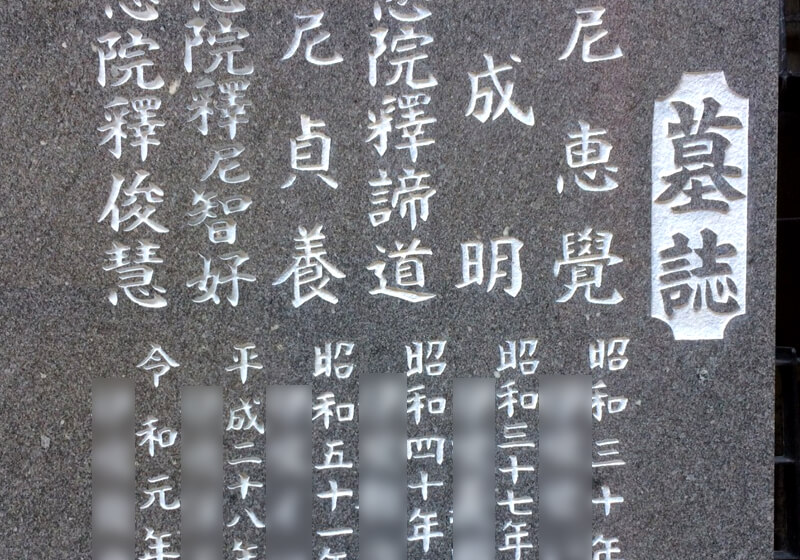 墓誌
尼恵覺
昭和三十年
成明
昭和三十七年
院釋諦道
昭和四十年
尼貞養
昭和五十一年
院釋尼智好
平成二十八年
院釋俊慧
令和元年